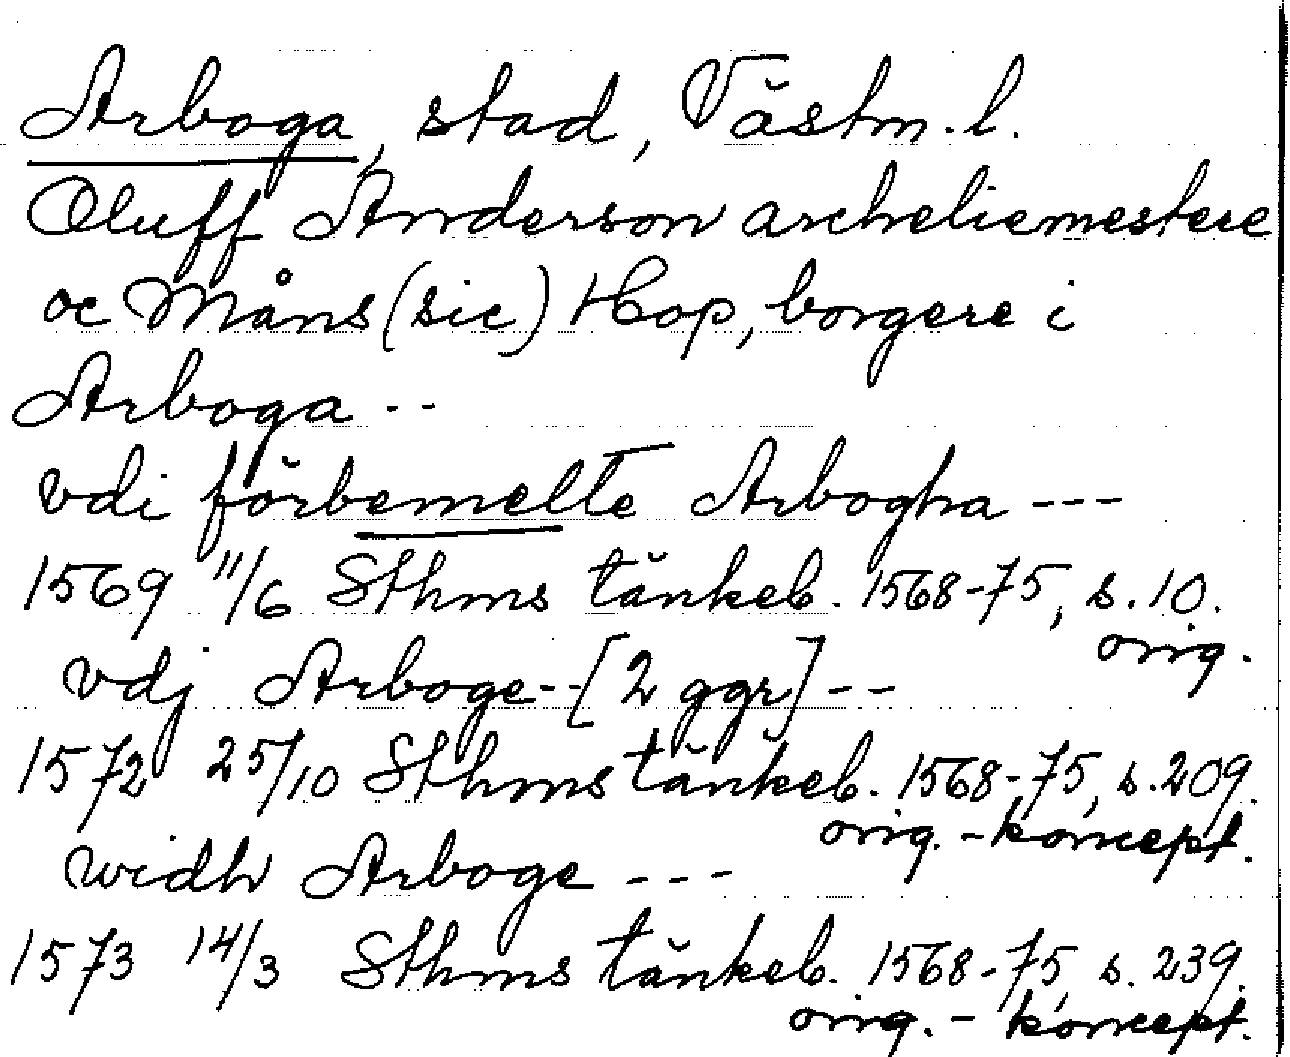 Arboga, stad, Västm. l.
Oluff Anderson archeliemestere
oc Måns (sic) Hop, borgere i
Arboga --
vdi förbemelte Arbogha ---
1569 11/6 Sthms tänkeb. 1568-75, s. 10.
orig.
vdj Arboge -- [2 ggr] --
1572 25/10 Sthms tänkeb. 1568-75, s. 209.
orig. - koncept.
widh Arboge ---
1573 14/3 Sthms tänkeb. 1568-75, s. 239.
orig. - koncept.